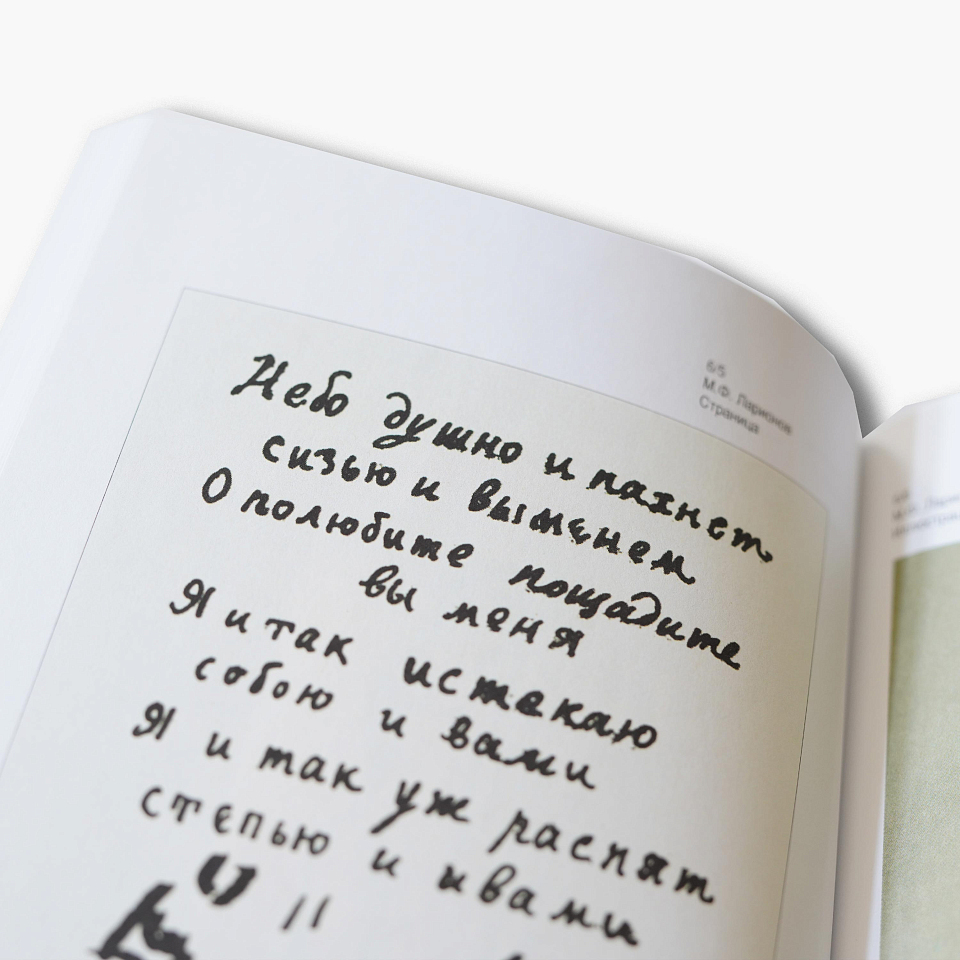 М.Ф. Ларионов
Страница
Небо душно и пахнет
сизью и выменем
О полюбите пощадите
вы меня
Я и так истекаю
собою и вами
Я и так уж распят
степью и ивами